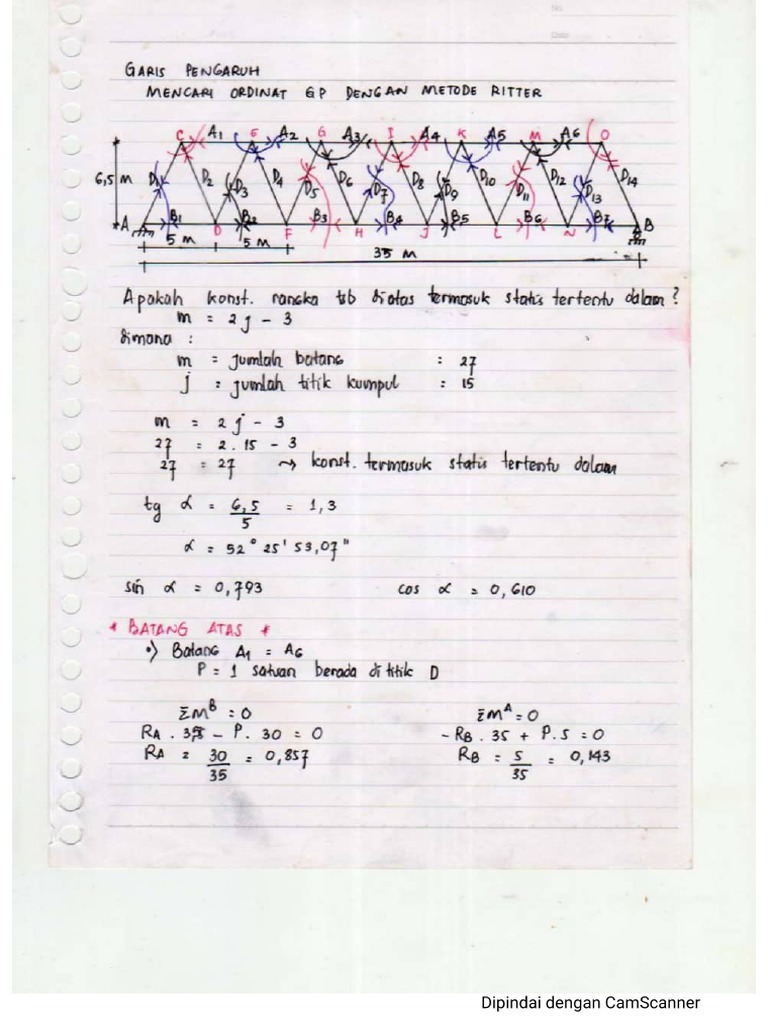 No.
Date
GARIS PENGARUH
MENCARI ORDINAT GP DENGAN METODE RITTER
C A1 E A2 G A3 I A4 K A5 M A6 O
6,5 M D1 D2 D3 D4 D5 D6 D7 D8 D9 D10 D11 D12 D13 D14
A B1 D B2 F B3 H B4 J B5 L B6 N B7 B
5 M 5 M
35 M
Apakah konst. rangka tsb diatas termasuk statis tertentu dalam?
m = 2j - 3
dimana :
m = jumlah batang : 27
j = jumlah titik kumpul : 15
m = 2j - 3
27 = 2.15 - 3
27 = 27 ~> konst. termasuk statis tertentu dalam
tg α = 6,5/5 = 1,3
α = 52° 25' 53,07"
sin α = 0,793 cos α = 0,610
* BATANG ATAS *
•) Batang A1 = A6
P = 1 satuan berada di titik D
ΣM^B = 0 ΣM^A = 0
RA . 35 - P. 30 = 0 - RB. 35 + P.5 = 0
RA = 30/35 = 0,857 RB = 5/35 = 0,143
Dipindai dengan CamScanner